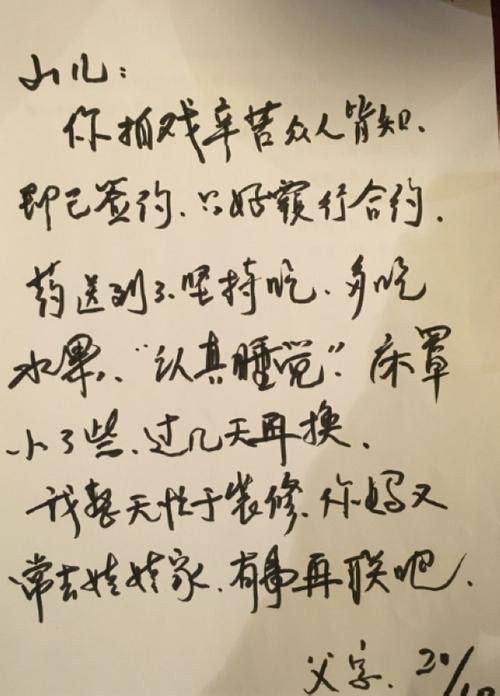 山儿：
你拍戏辛苦众人皆知.
即已签约.只好履行合约.
药送到了.坚持吃.多吃
水果、“认真睡觉”.床罩
小了些.过几天再换.
我整天忙于装修.你妈又
常去娃娃家.有事再联吧.
父字.20/